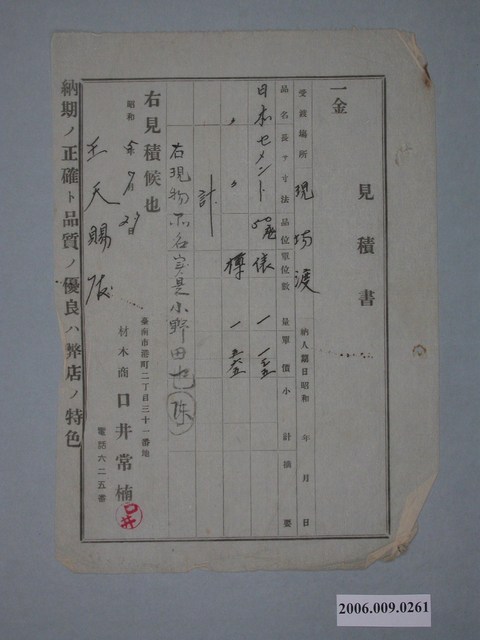 見積書
一金
受渡場所 現物渡 納入期日昭和 年 月 日
品名 長サ 寸法 品位 單位 數量 單價 小計 摘要
日本セメント 50瓩 俵 一 一五
〃 〃 樽 一
計
右現物
小野田
右見積候也
昭和 年 9月 29日
臺南市港町二丁目三十一番地
材木商 口井常楠
電話六二五番
王天賜殿
納期ノ正確ト品質ノ優良ハ弊店ノ特色
2006.009.0261